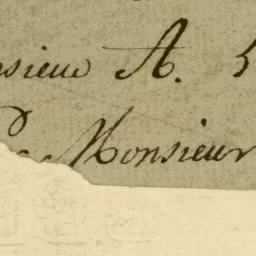 sieur A. 5
Monsieur